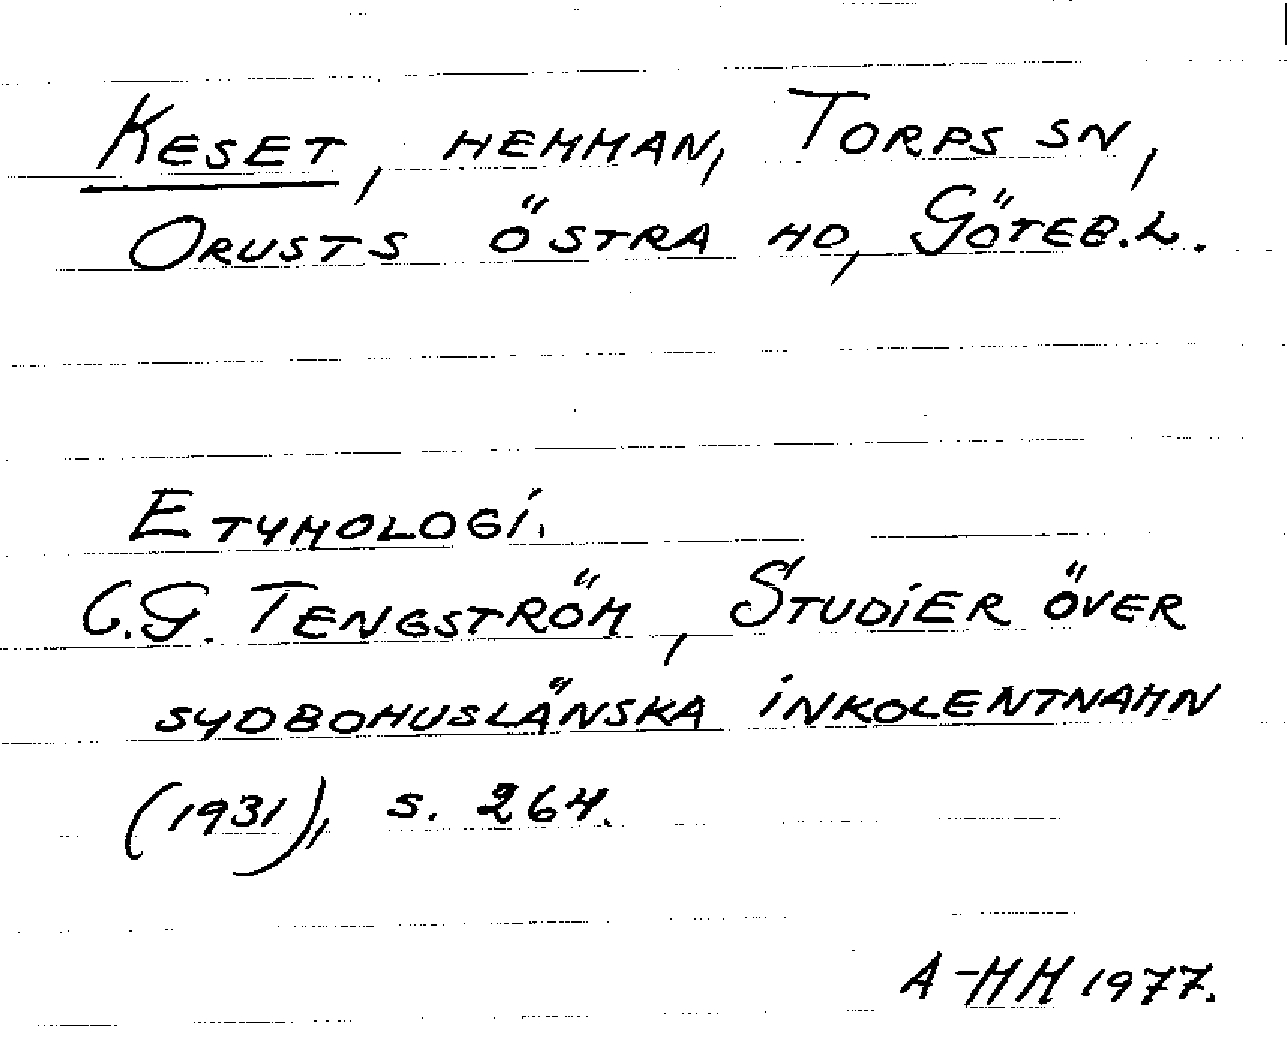 Keset, hemman, Torps sn,
Orusts östra hd, Göteb.l.
Etymologi.
C.G. Tengström, Studier över
sydbohuslänska inkolentnamn
(1931), s. 264.
A-MH 1977.